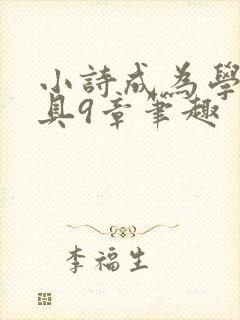 小詩成為學
具9章筆趣
李福生